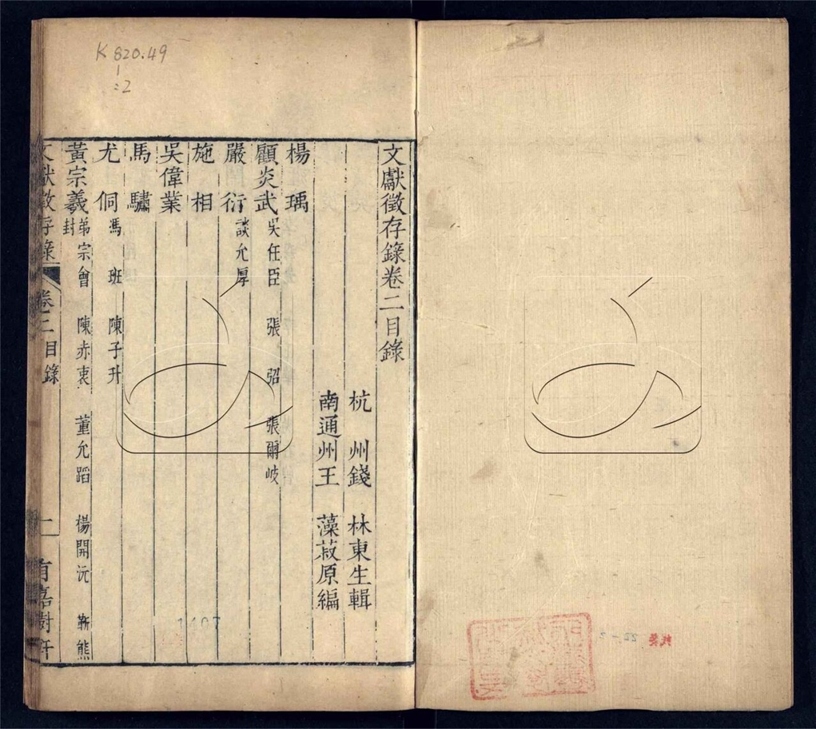 K 820.49
1
:2
文獻徵存錄卷二目錄
杭州錢林東生輯
南通州王藻菽原編
楊瑀
顧炎武 吳任臣 張弨 張爾岐
嚴衍 談允厚
施相
吳偉業
馬驌
尤侗 馮班 陳子升
黃宗羲 弟宗會 陳赤衷 董允蹈 楊開沅 靳熊
封
文獻徵存錄 卷二目錄 一 有嘉樹軒
1407